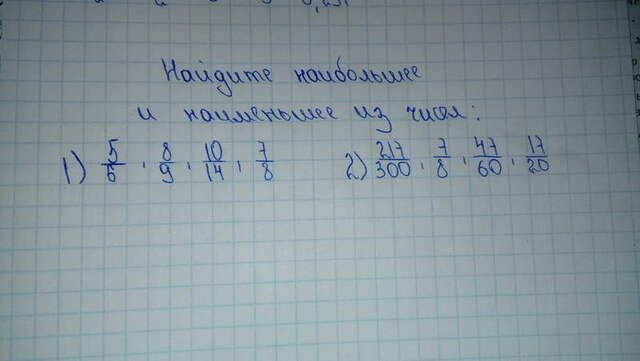 Найдите наибольшее
и наименьшее из чисел:
1) 5/6, 8/9, 10/14, 7/8 2) 217/300, 7/8, 47/60, 17/20